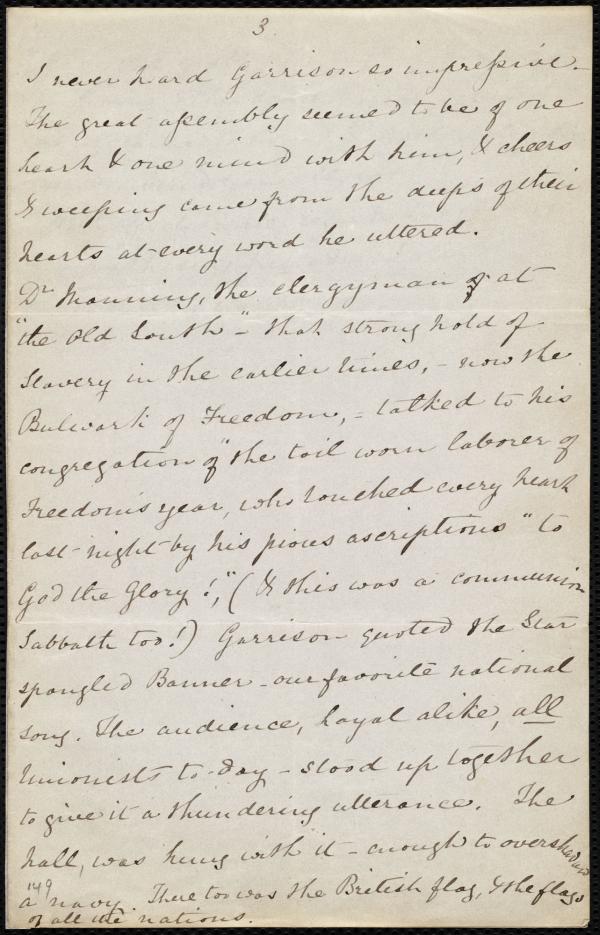 3
I never heard Garrison so impressive.
The great assembly seemed to be of one
heart & one mind with him, & cheers
& weeping came from the deeps of their
hearts at every word he uttered.
Dr Manning, the clergyman at
"the Old South" - that strong hold of
Slavery in the earlier times, - now the
Bulwark of Freedom, - talked to his
congregation of "the toil worn laborer of
Freedom's year, who touched every heart
last night by his pious ascriptions "to
God the Glory!," (& this was a communion
Sabbath too!) Garrison quoted the Star
spangled Banner - our favorite national
song. The audience, loyal alike, all
Unionists to-day - stood up together
to give it a thundering utterance. The
hall, was hung with it - enough to overshadow
a navy. There too was the British flag, & the flags
of all the nations.
149